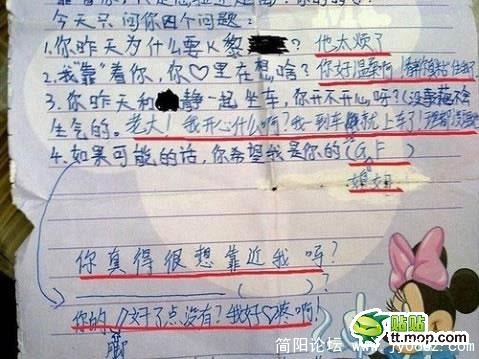 今天只问你四个问题：
1.你昨天为什么要K黎？他太烦了
2.我“靠”着你，你♡里在想啥？你好温柔啊！
3.你昨天和静一起坐车，你开不开心呀？(没事我不会
生气的。老大！我开心什么啊？我一到车就上车了！
4.如果可能的话，你希望我是你的(G F)
你真得很想靠近我吗？
( )？
你的脚好了点没有？我好♡疼啊！
贴贴
tt.mop.com
简阳论坛